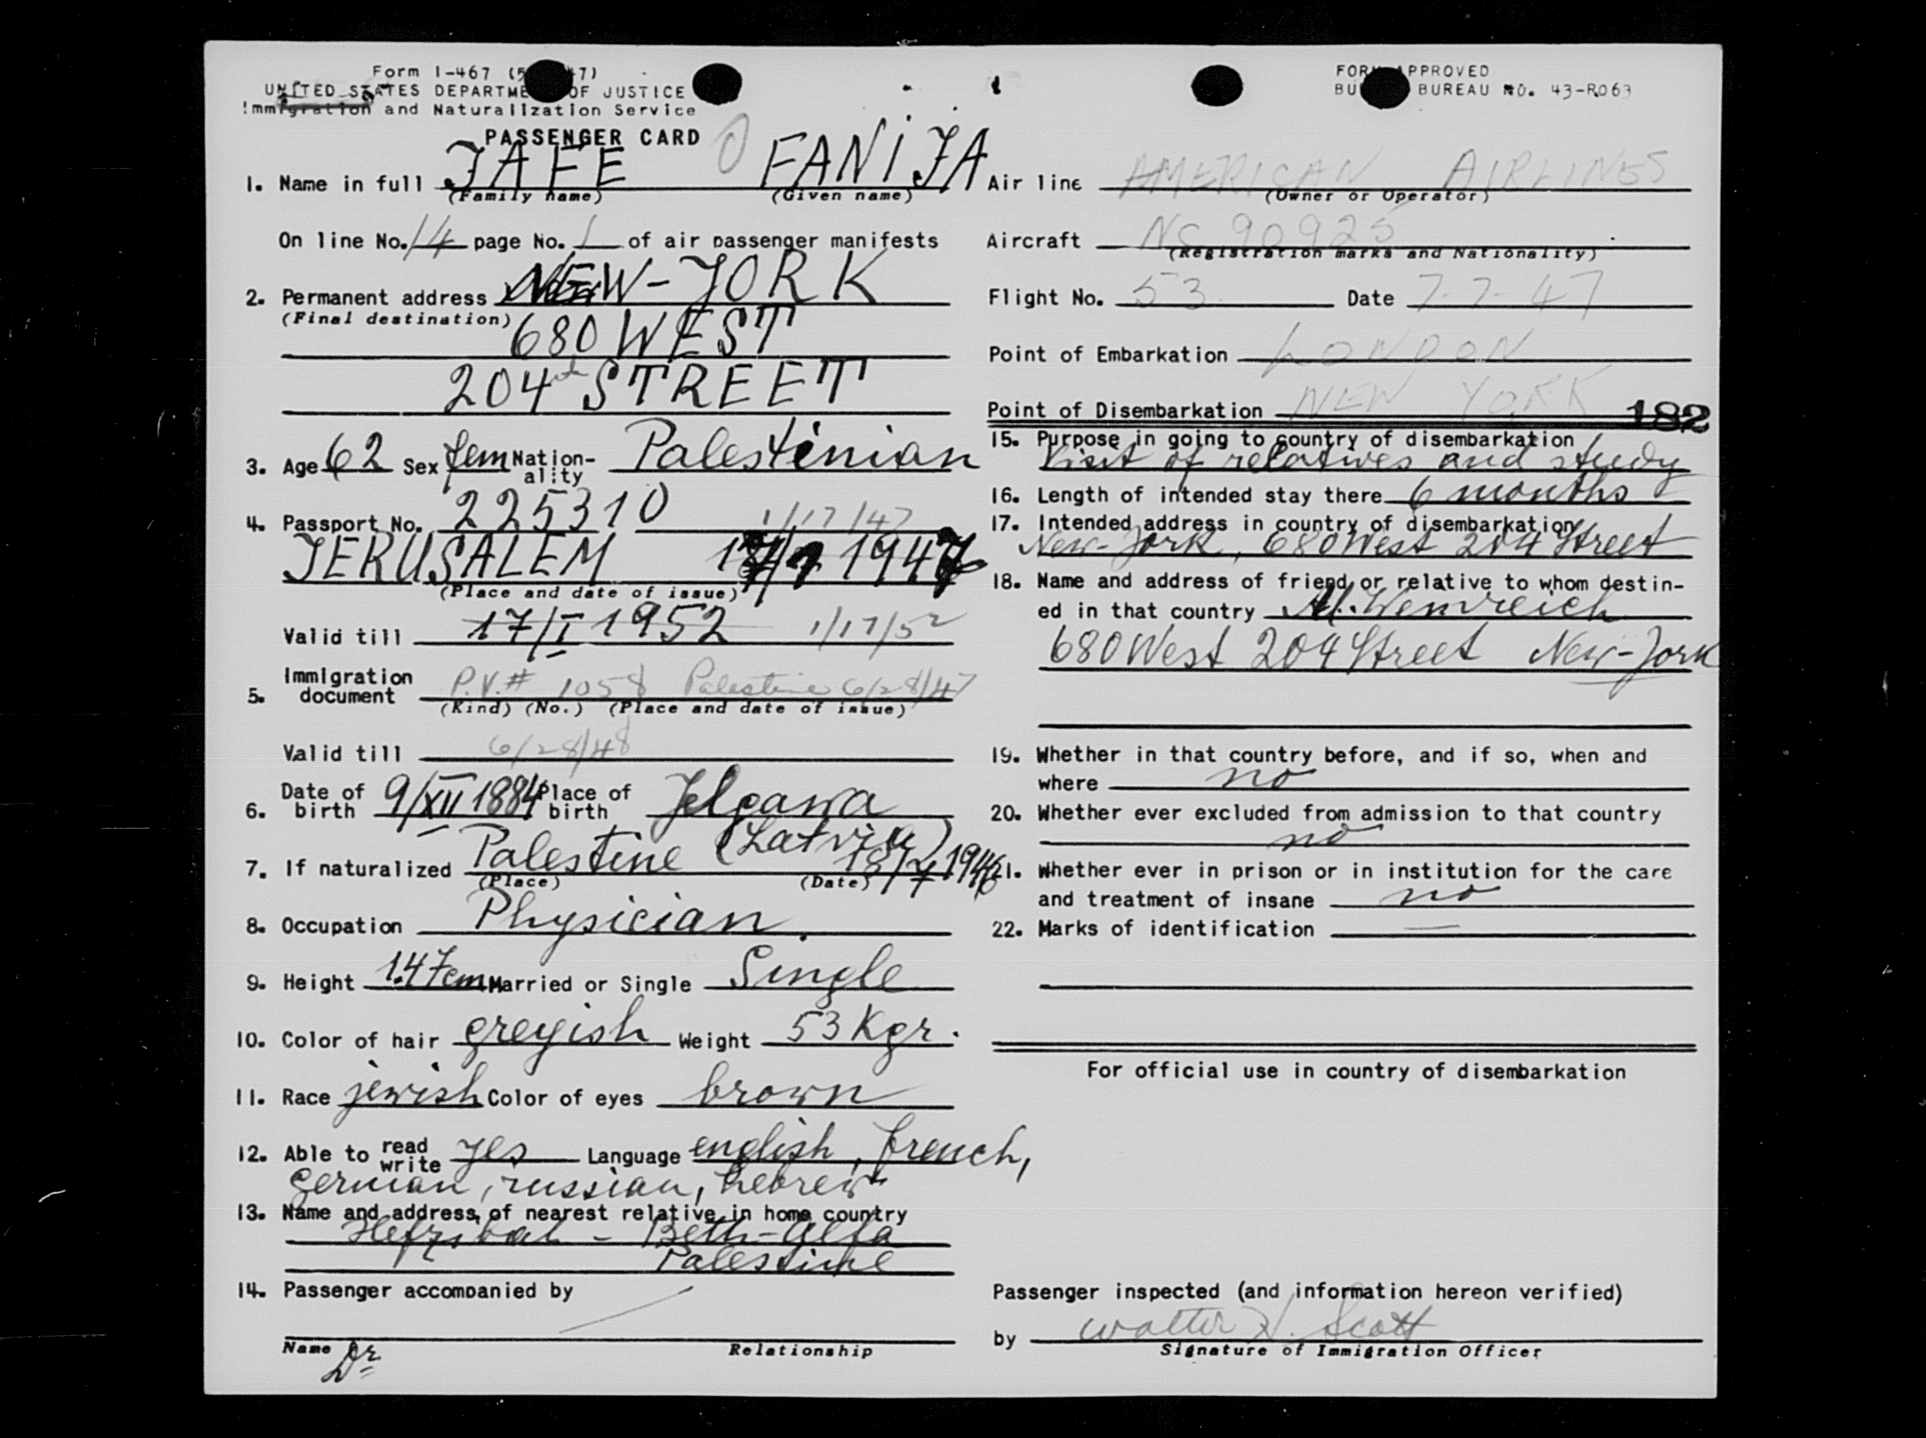 Form I-467 (5 47)
UNITED STATES DEPARTMENT OF JUSTICE
Immigration and Naturalization Service
PASSENGER CARD
1. Name in full JAFE FANIJA
(Family name) (Given name)
On line No. 14 page No. 1 of air passenger manifests
2. Permanent address NEW-YORK
(Final destination)
680 WEST
204th STREET
3. Age 62 Sex fem Nation-ality Palestinian
4. Passport No. 225310 1/17/47
JERUSALEM 1947
(Place and date of issue)
Valid till 17/I 1952 1/17/52
5. Immigration document P.V.# 1058 Palestine 6/28/47
(Kind) (No.) (Place and date of issue)
Valid till 6/28/48
6. Date of birth 9/XII 1884 Place of birth Jelgawa
(Latvia)
7. If naturalized Palestine 1946
(Place) (Date)
8. Occupation Physician.
9. Height 1.47cm Married or Single Single
10. Color of hair greyish Weight 53 Kgr.
11. Race jewish Color of eyes brown
12. Able to read write yes Language english, french,
german, russian, hebrew
13. Name and address of nearest relative in home country
Hefzibah - Beth-Alfa
Palestine
14. Passenger accompanied by
Name Relationship
Dr
FORM APPROVED
BU BUREAU NO. 43-R063
Air line AMERICAN AIRLINES
(Owner or Operator)
Aircraft NC 90925
(Registration marks and Nationality)
Flight No. 53 Date 7-7-47
Point of Embarkation LONDON
Point of Disembarkation NEW YORK 182
15. Purpose in going to country of disembarkation
Visit of relatives and study
16. Length of intended stay there 6 months
17. Intended address in country of disembarkation
New-York, 680 West 204 Street
18. Name and address of friend or relative to whom destin-
ed in that country M. Weinreich
680 West 204 Street New-York
19. Whether in that country before, and if so, when and
where no
20. Whether ever excluded from admission to that country
no
21. Whether ever in prison or in institution for the care
and treatment of insane no
22. Marks of identification —
For official use in country of disembarkation
Passenger inspected (and information hereon verified)
by Walter H. Scott
Signature of Immigration Officer